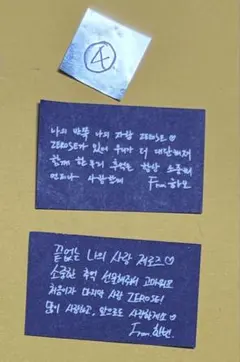 ④
나의 반쪽 나의 자랑 ZEROSE ♡
ZEROSE가 있어 우리가 더 대단해져
함께 한 추억 항상 소중해
언제나 사랑해
From. 하오
끝없는 나의 사랑 제로즈 ♡
소중한 추억 선물해줘서 고마워요
처음이자 마지막 사랑 ZEROSE!
많이 사랑하고, 앞으로도 사랑할게요 ♡
From. 한빈